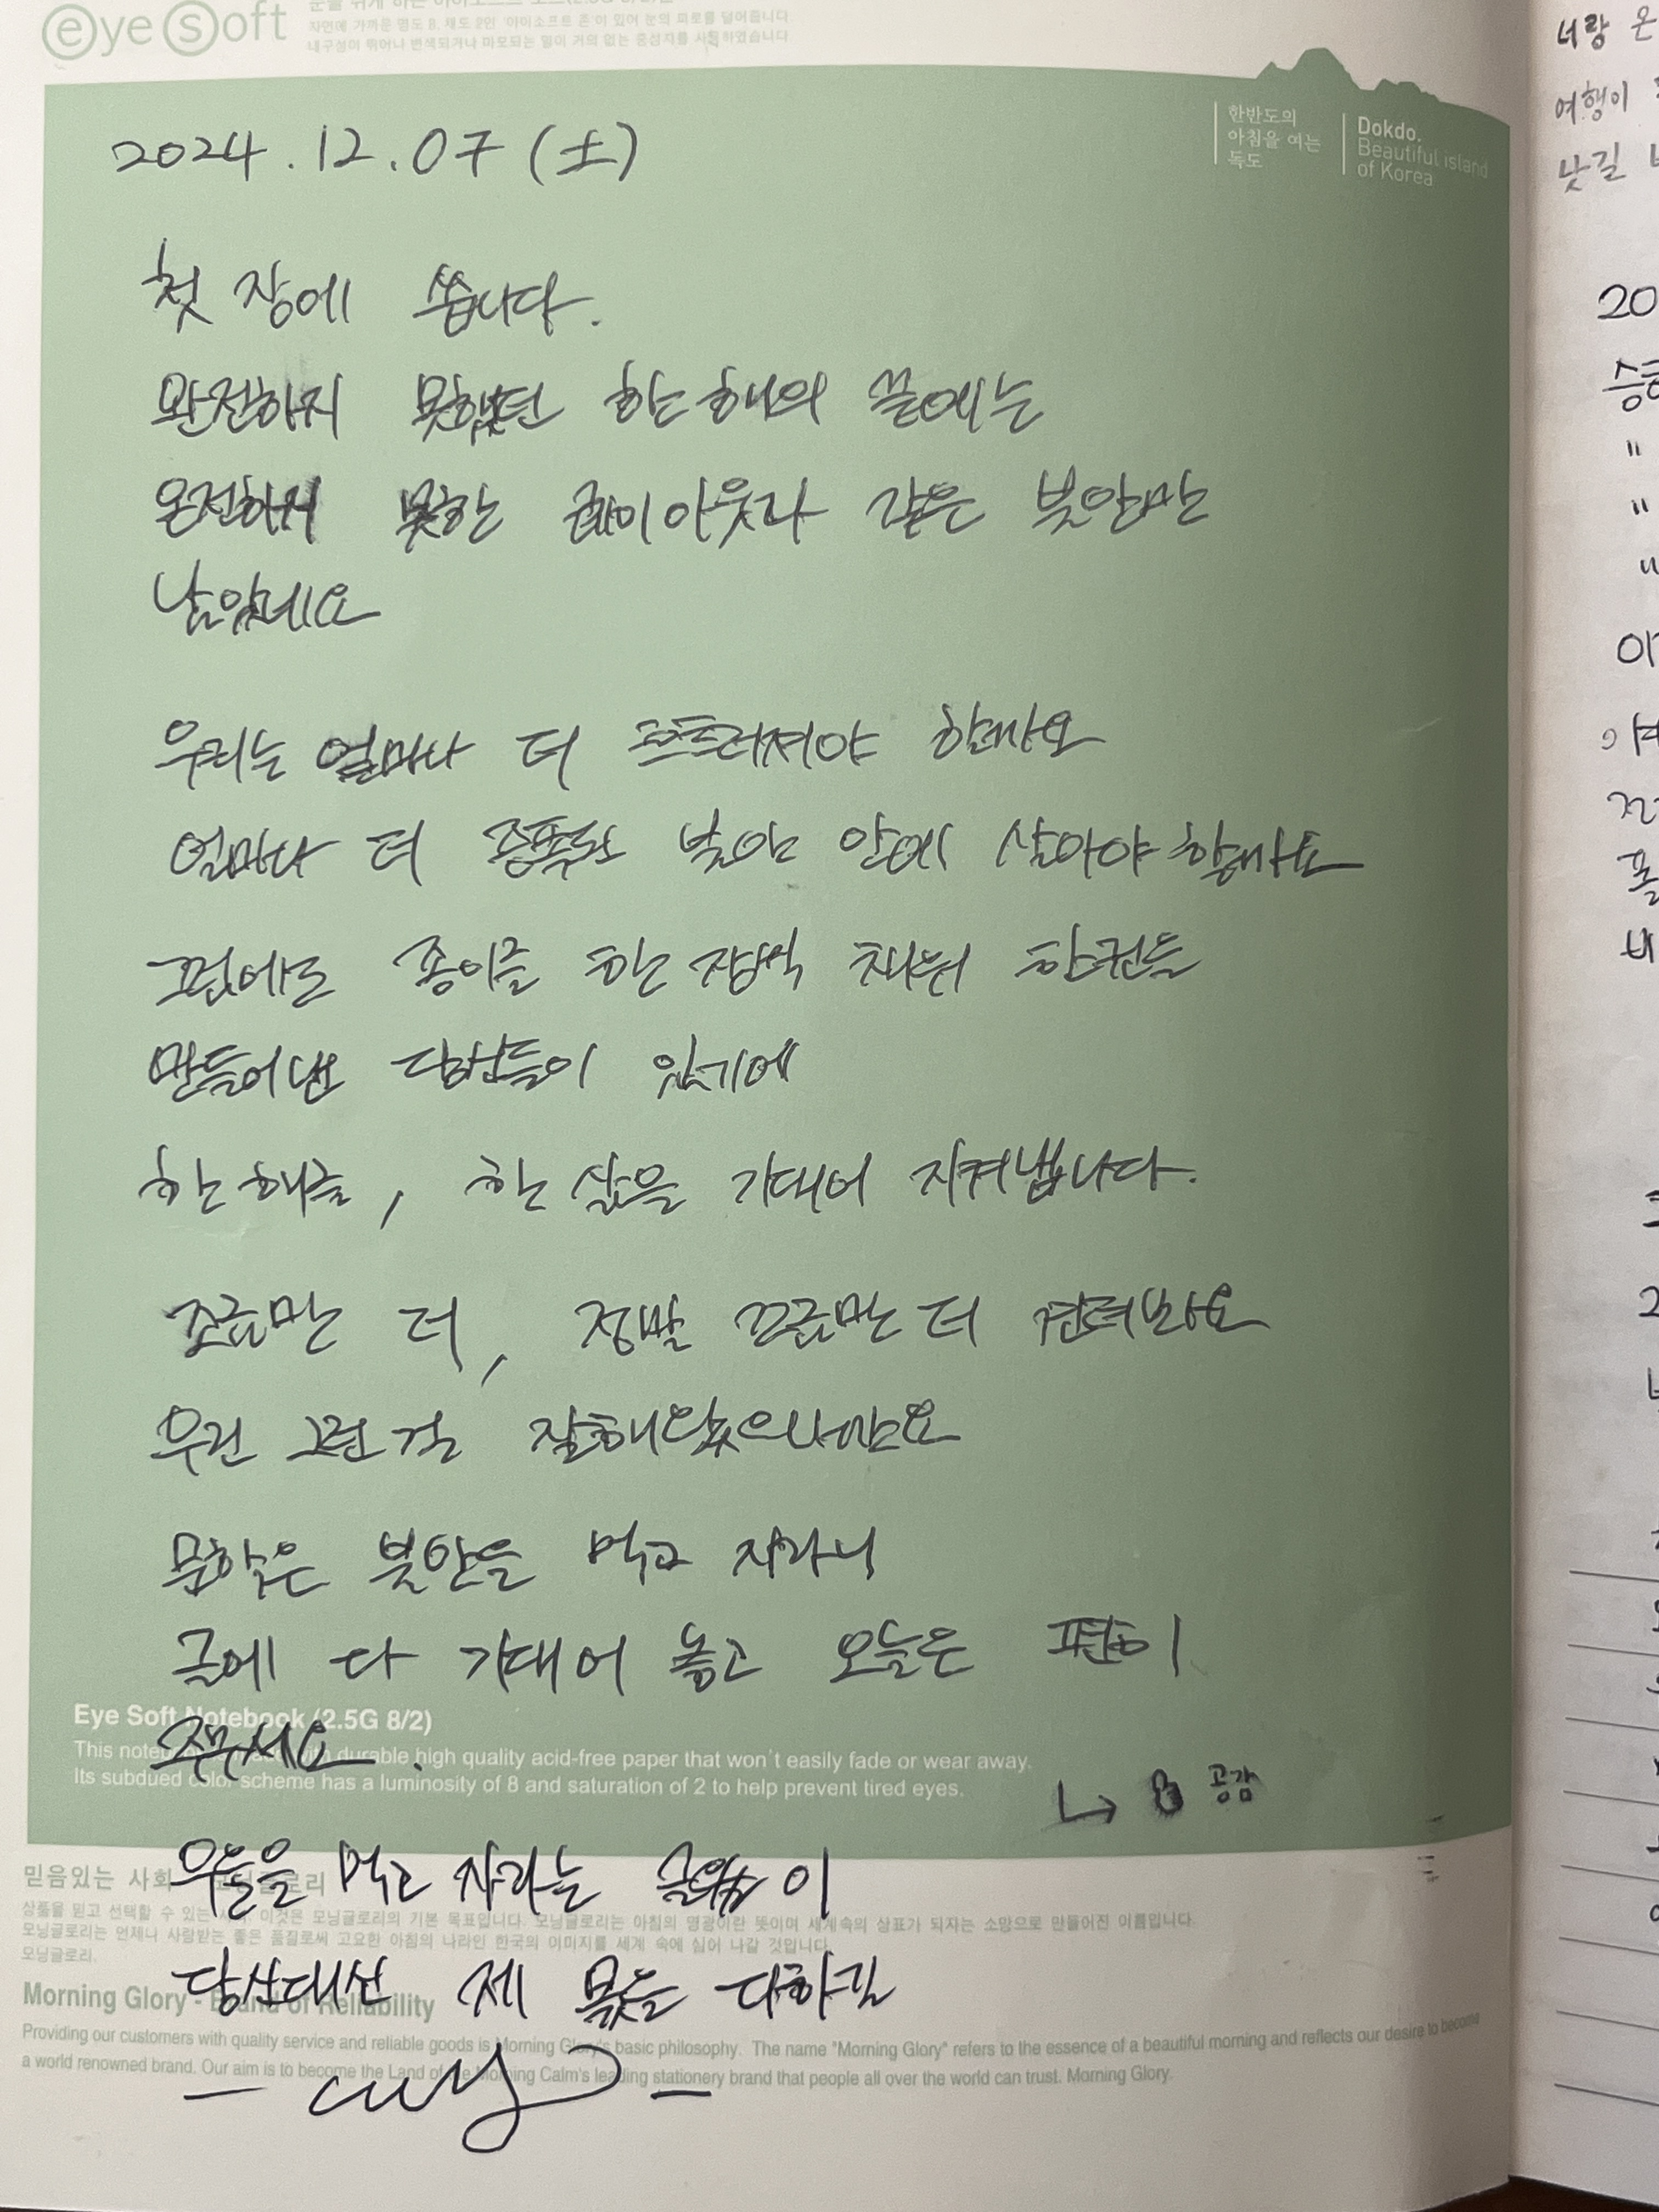 eye soft
자연에 가까운 명도 8, 채도 2인 '아이소프트 존'이 있어 눈의 피로를 덜어줍니다
내구성이 뛰어나 변색되거나 마모되는 일이 거의 없는 중성지를 사용하였습니다
한반도의
아침을 여는
독도
Dokdo.
Beautiful island
of Korea
2024.12.07 (土)
첫 장에 씁니다.
완전하지 못했던 한 해의 끝에는
온전하지 못한 레이아웃과 같은 불안만
남았네요
우리는 얼마나 더 흐트러져야 할까요
얼마나 더 증폭된 불안 안에 살아야 할까요
그럼에도 종이를 한 장씩 채워 한권을
만들어낸 당신들이 있기에
한 해를, 한 삶을 기대어 지켜냅니다.
조금만 더, 정말 쪼금만 더 견뎌봐요
우린 그런 걸 잘해왔으니깐요
문학은 불안을 먹고 자라니
글에 다 기대어 놓고 오늘은 편히
주무세요.
↳ 공감
Eye Soft Notebook (2.5G 8/2)
This durable high quality acid-free paper that won't easily fade or wear away.
Its subdued color scheme has a luminosity of 8 and saturation of 2 to help prevent tired eyes.
우울을 먹고 자라는 이
당신대신 제 몫을 다하길
믿음있는 사회 모닝글로리
상품을 믿고 선택할 수 있는 이것은 모닝글로리의 기본 목표입니다. 모닝글로리는 아침의 영광이란 뜻이며 세계속의 상표가 되자는 소망으로 만들어진 이름입니다
모닝글로리는 언제나 사랑받는 좋은 품질로써 고요한 아침의 나라인 한국의 이미지를 세계 속에 심어 나갈 것입니다.
모닝글로리.
Morning Glory - Brand of Reliability
Providing our customers with quality service and reliable goods is Morning Glory's basic philosophy. The name "Morning Glory" refers to the essence of a beautiful morning and reflects our desire to become
a world renowned brand. Our aim is to become the Land of the Morning Calm's leading stationery brand that people all over the world can trust. Morning Glory.
너랑
여행이
낮길
20